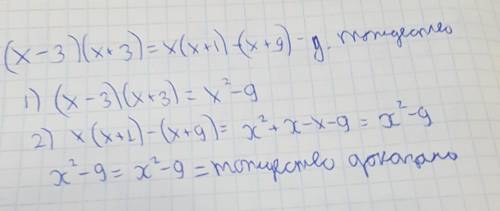 (x-3)(x+3)=x(x+1)-(x+9) - д. тождество
1) (x-3)(x+3)= x²-9
2) x(x+1)-(x+9)= x²+x-x-9= x²-9
x²-9= x²-9 = тождество доказано